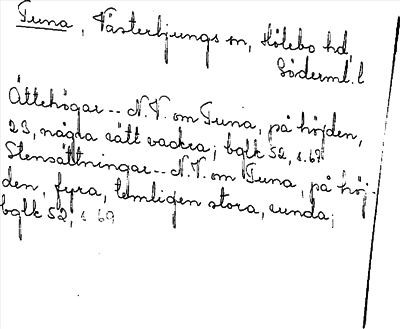 Tuna, Västerljungs sn, Hölebo hd,
Söderml. l
Ättehögar -- N.V. om Tuna, på höjden,
23, några rätt vackra; bglk 52, s. 67
Stensättningar -- N.V. om Tuna, på höj-
den, fyra, temligen stora, runda;
bglk 52, s 69